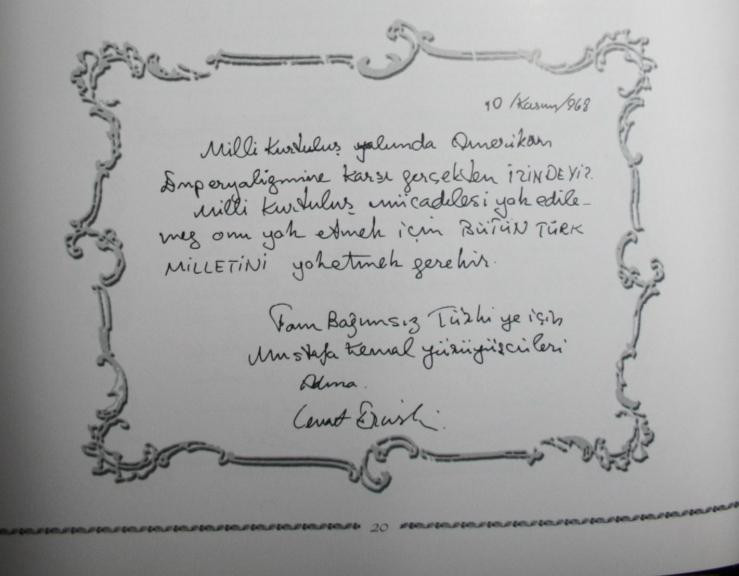 10/Kasım/968
Milli Kurtuluş yolunda Amerikan
Emperyalizmine karşı gerçekten İZİNDEYİZ.
Milli Kurtuluş mücadelesi yok edile-
mez onu yok etmek için BÜTÜN TÜRK
MİLLETİNİ yoketmek gerekir.
Tam Bağımsız Türkiye için
Mustafa Kemal yürüyüşçüleri
Adına.
20